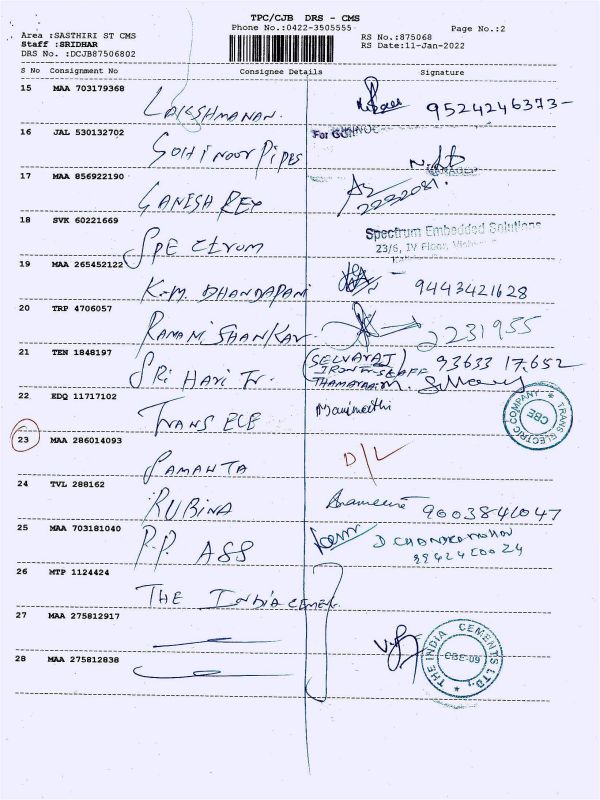 TPC/CJB DRS - CMS
Phone No.:0422-3505555 Page No.:2
Area :SASTHIRI ST CMS RS No.:875068
Staff :SRIDHAR RS Date:11-Jan-2022
DRS No. :DCJB87506802
S No Consignment No Consignee Details Signature
15 MAA 703179368
LAKSHMANAN. 9524246373-
16 JAL 530132702 For
GOHINOOR PIPES
17 MAA 856922190
GANESH REY 2232081.
18 SVK 60221669
SPECTRUM Spectrum Embedded Solutions
23/6, IV Floor,
19 MAA 265452122
K.M. DHANDAPANI 9443421628
20 TRP 4706057
RAMANI SHANKAR 2231955
21 TEN 1848197 (SELVARAJ) 93633 17652
SRI HARI Tr.
22 EDQ 11717102
TRANS ELE Manimeethi
TRANS ELECTRIC COMPANY
CBE
23 MAA 286014093
SAMANTA D/L
24 TVL 288162
RUBINA 9003841047
25 MAA 703181040
P.P. ASS D.CHANDRAMOHAN
26 MTP 1124424
THE INDIA CEMEN
27 MAA 275812917
THE INDIA CEMENTS LTD.
CBE-09
28 MAA 275812838